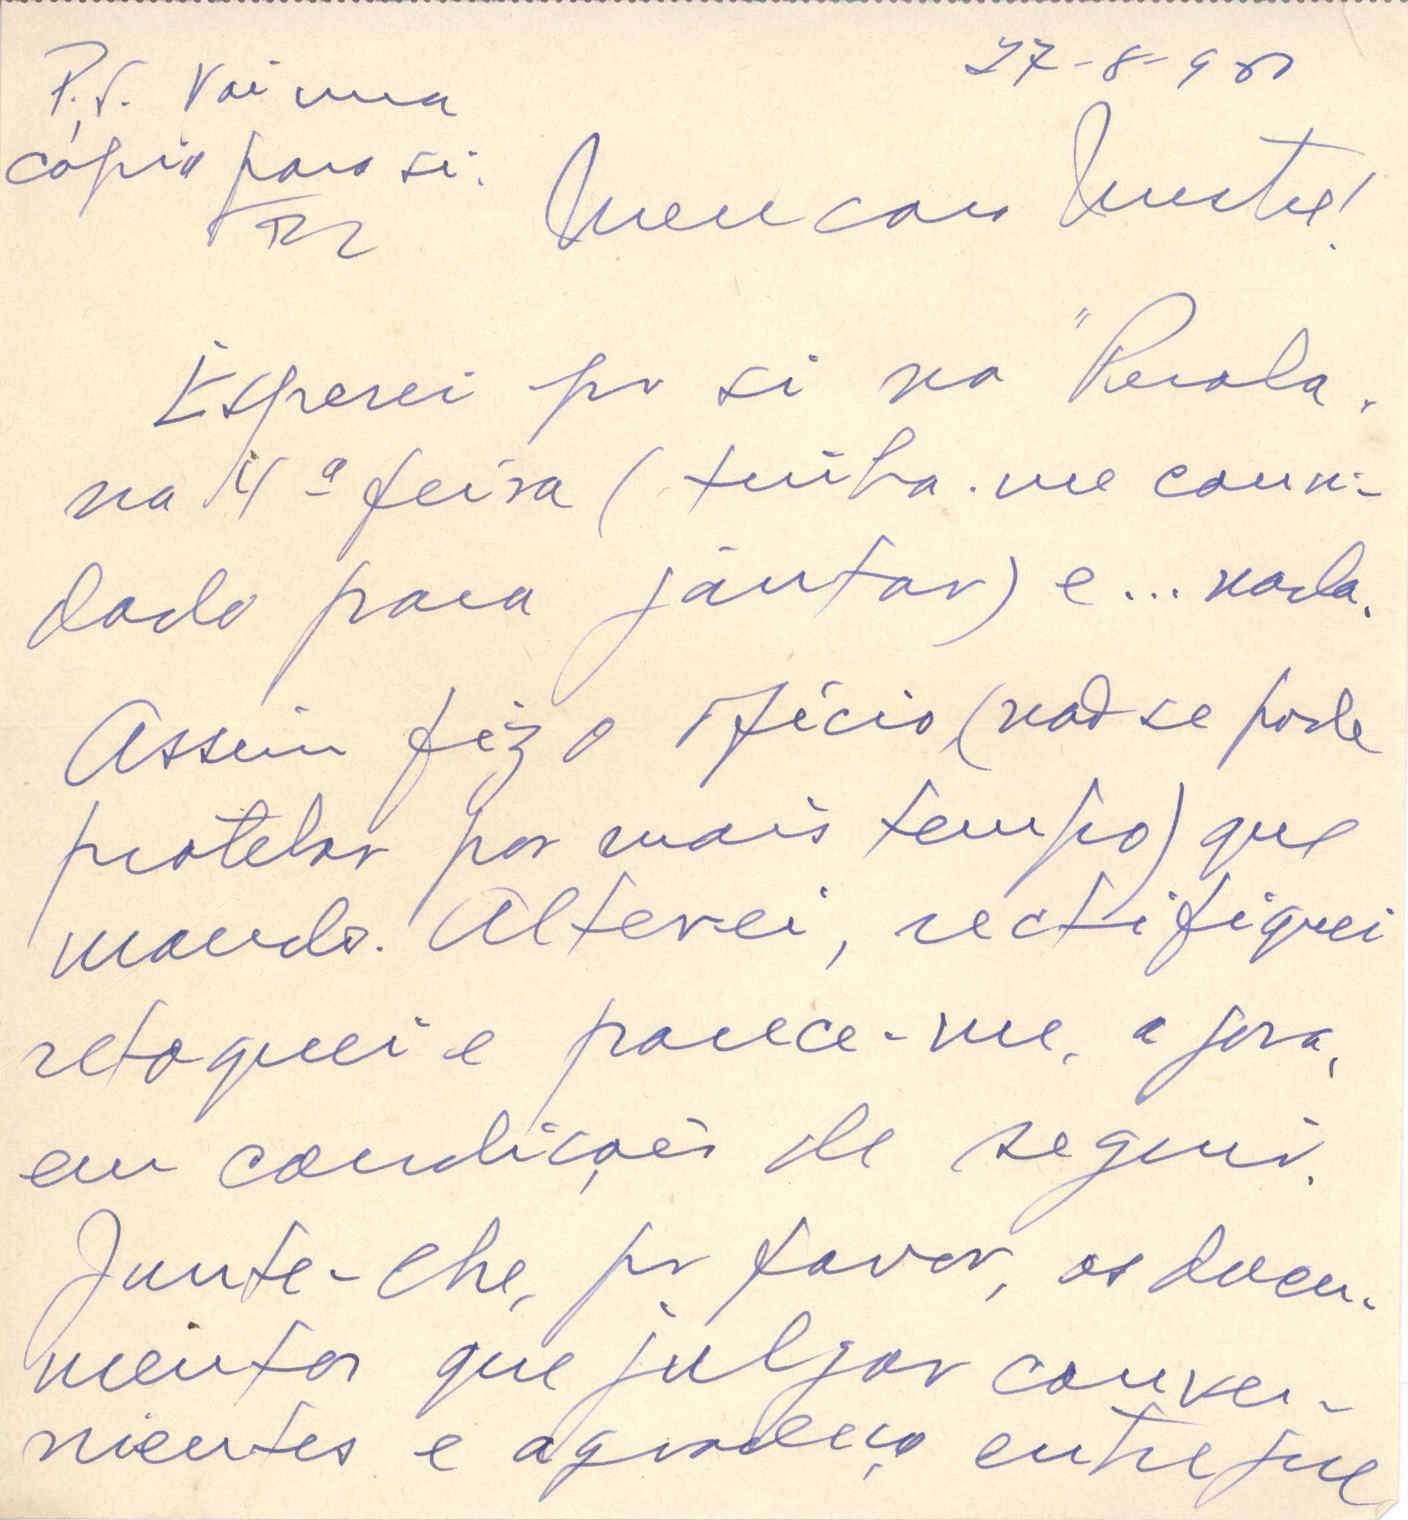 27-8-980
P.S. Vai uma
cópia para si.
Meu caro Mestre!
Esperei por si na "Perola.
na 4ª feira (tinha-me convi-
dado para jantar) e... nada.
Assim fiz o ofício (não se pode
protelar por mais tempo) que
mando. Alterei, rectifiquei
retoquei e parece-me, agora,
em condições de seguir.
Junte-lhe, por favor, os docu-
mentos que julgar conve-
nientes e agradeço entregue